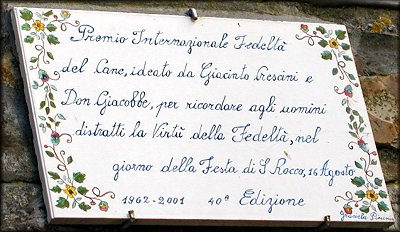 Premio Internazionale Fedeltà
del Cane, ideato da Giacinto Crescini e
Don Giacobbe, per ricordare agli uomini
distratti la Virtù della Fedeltà, nel
giorno della Festa di S. Rocco, 16 Agosto
1962-2001 40ª Edizione
Graziella